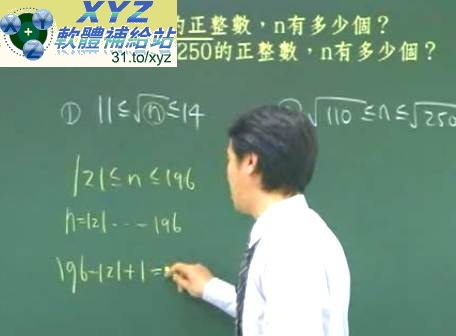 XYZ
軟體補給站
31.to/xyz
的正整數，n有多少個？
250的正整數，n有多少個？
① 11≤√n≤14
√110≤n≤√250
121≤n≤196
n=121……196
196-121+1=